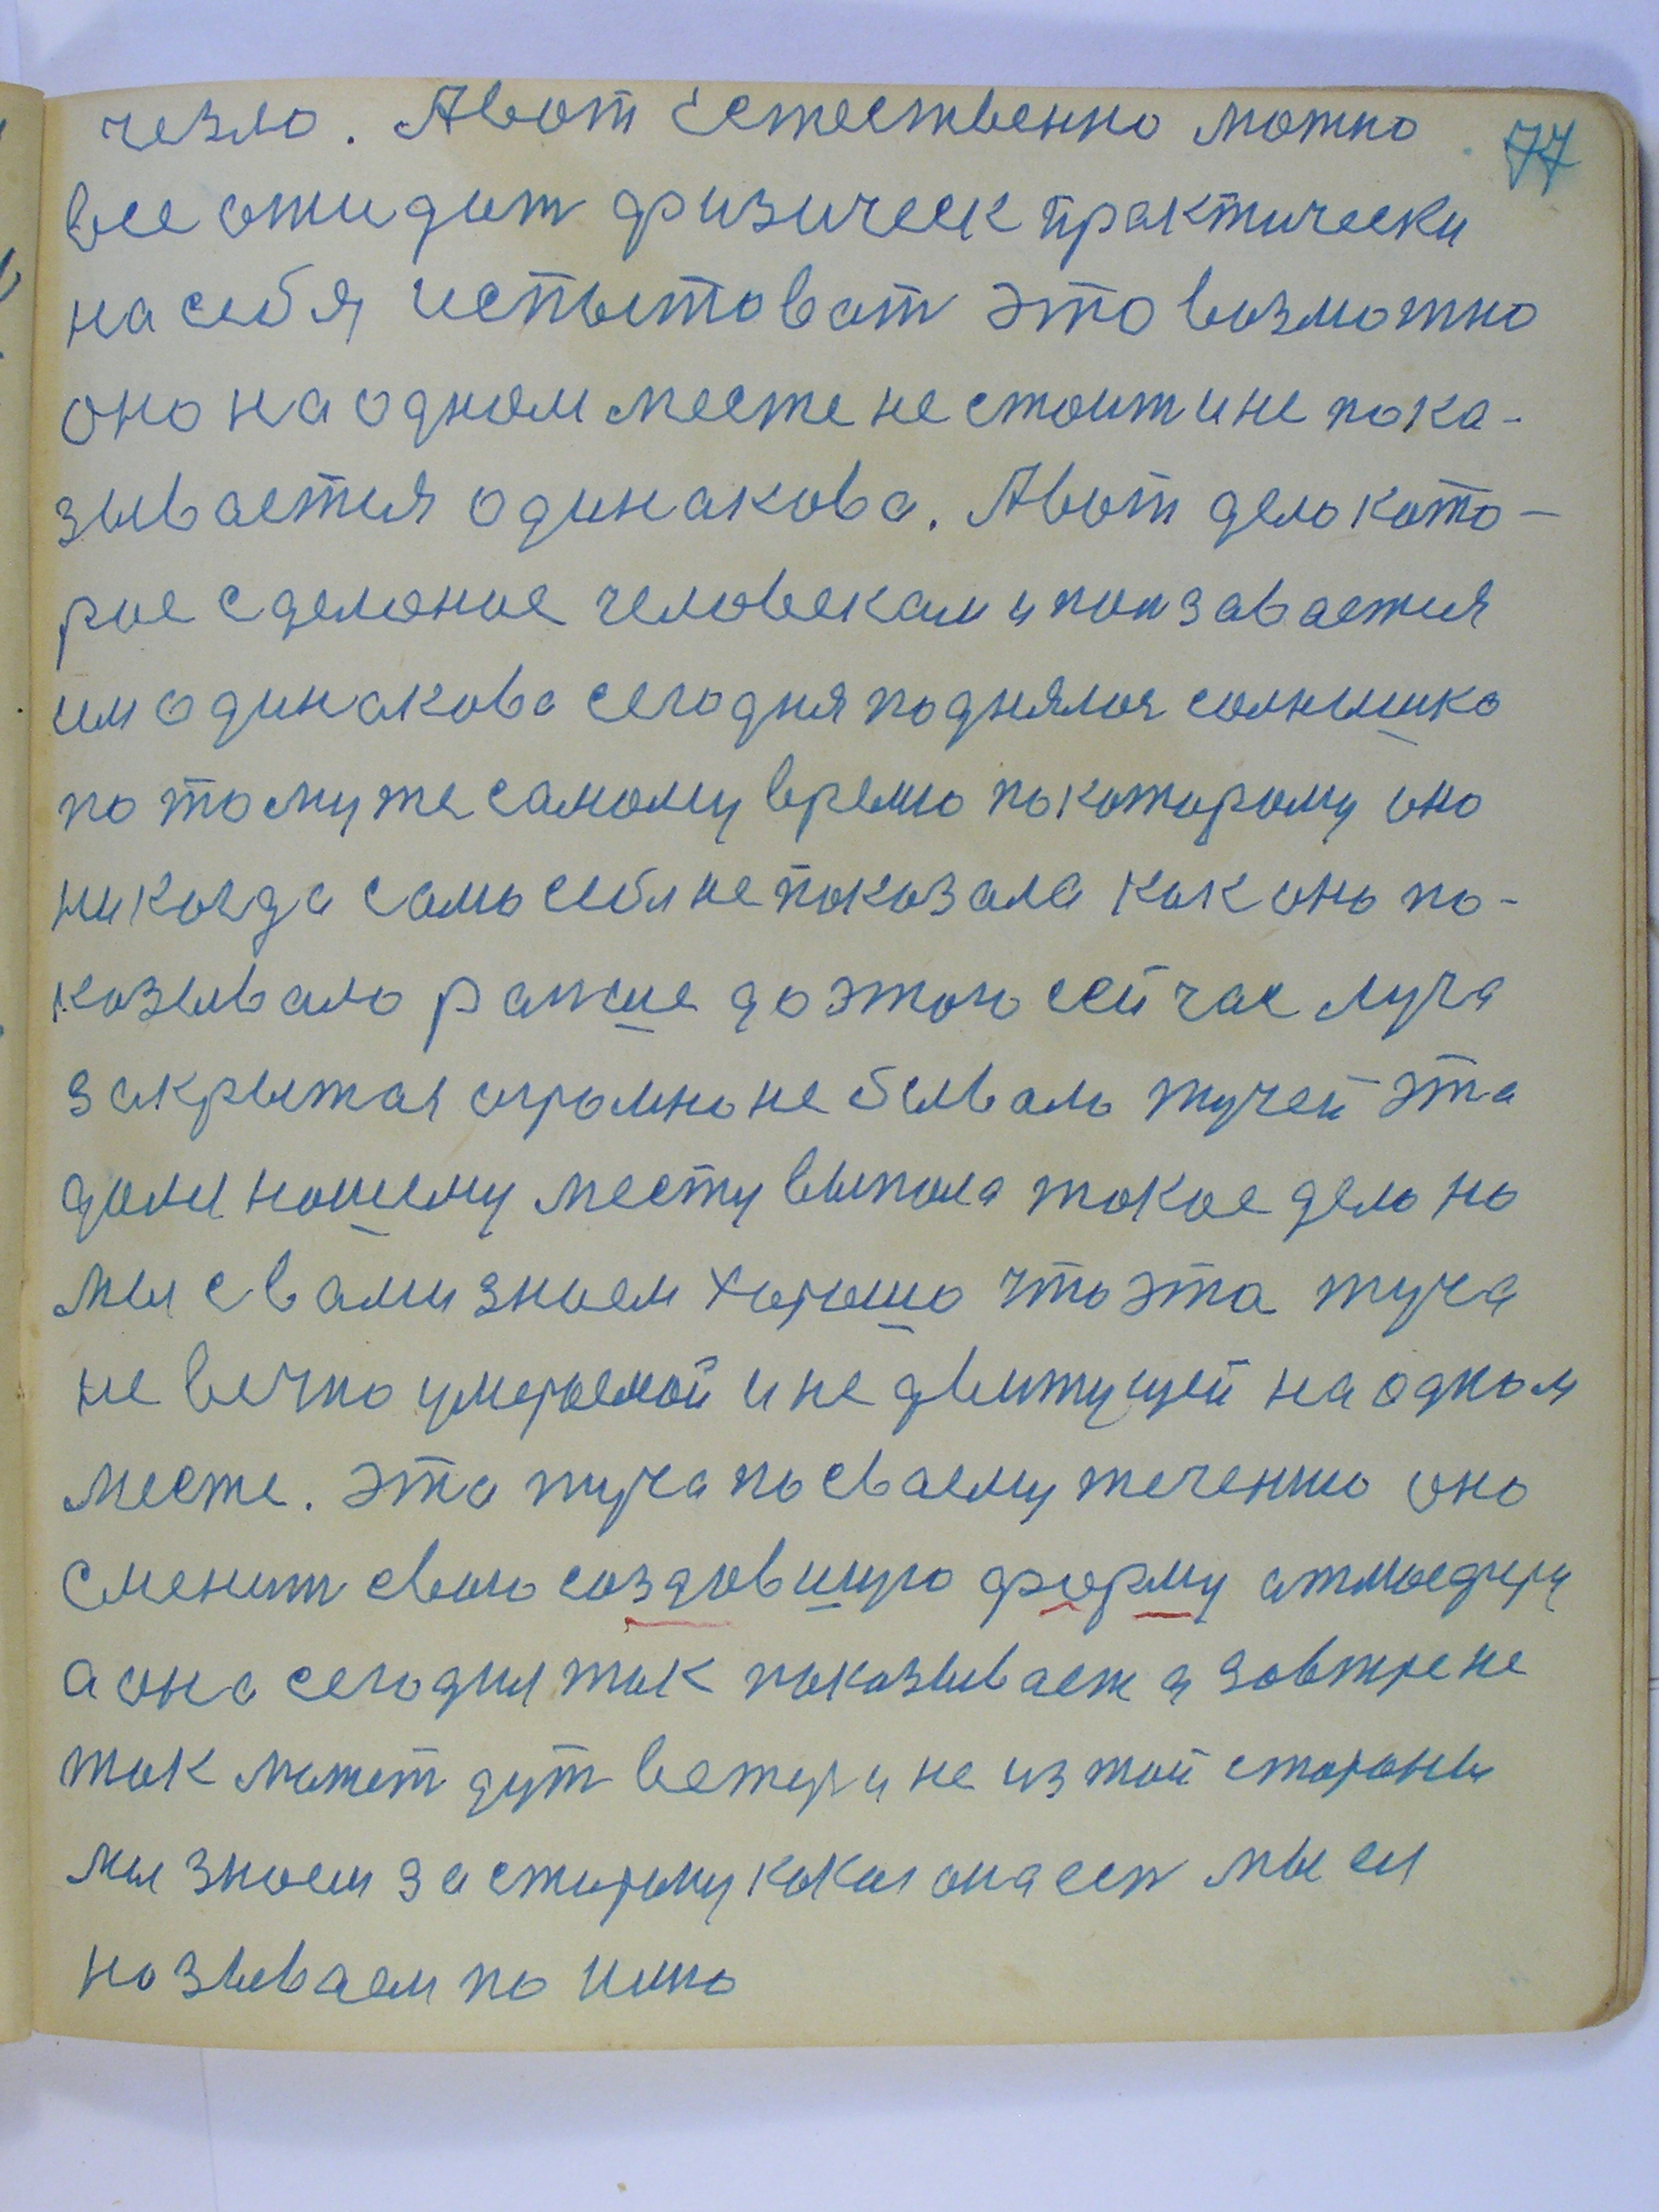 чезло. Авот Естественно можно 77
все ожидат физическ практически
на себя испытоват это возможно
оно на одном месте не стоит и не пока-
зывается одинакова. Авот дело кото-
рое сделоное человекам и показавается
им одинакова сегодня поднялся солнышко
по тому же самому времю по которому оно
никогда само себя не показала как оно по-
козывало раньше до этого сейчас луча
закрытая огромно не бывало тучей эта
доли нашему месту выпола токое дело но
мы с вами знаем хорошо что эта туча
не вечно умеремой и не движущей на одном
месте. эта туча по сваему течению оно
сменит свою создовшую форму атмосферу
а она сегодня так показывает а завтре не
так может дут ветер и не из той стороны
мы знаем за сторону какая она есть мы ея
называем по имю